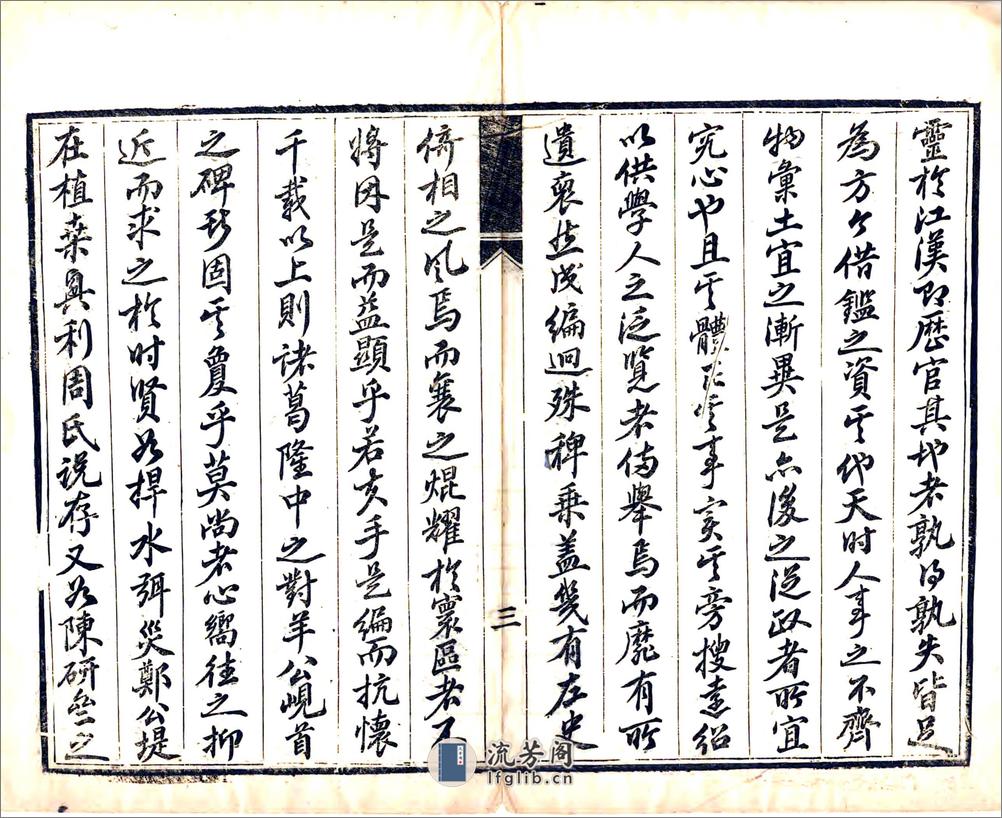 靈於江漢即歷官其地者孰得孰失皆足
為方今借鑑之資其他天時人事之不齊
物彙土宜之漸異是亦後之從政者所宜
究心也且其體例其事實其旁搜遠紹
以供學人之泛覽者備舉焉而靡有所
遺裒然成編迥殊稗乘蓋幾有左史
倚相之風焉而襄之焜耀於寰區者不
將因是而益顯乎若夫手是編而抗懷
千載以上則諸葛隆中之對羊公峴首
之碑形固其夐乎莫尚者心嚮往之抑
近而求之於時賢如捍水弭災鄭公堤
在植桑興利周氏說存又如陳研之
三
流芳阁
lfglib.cn